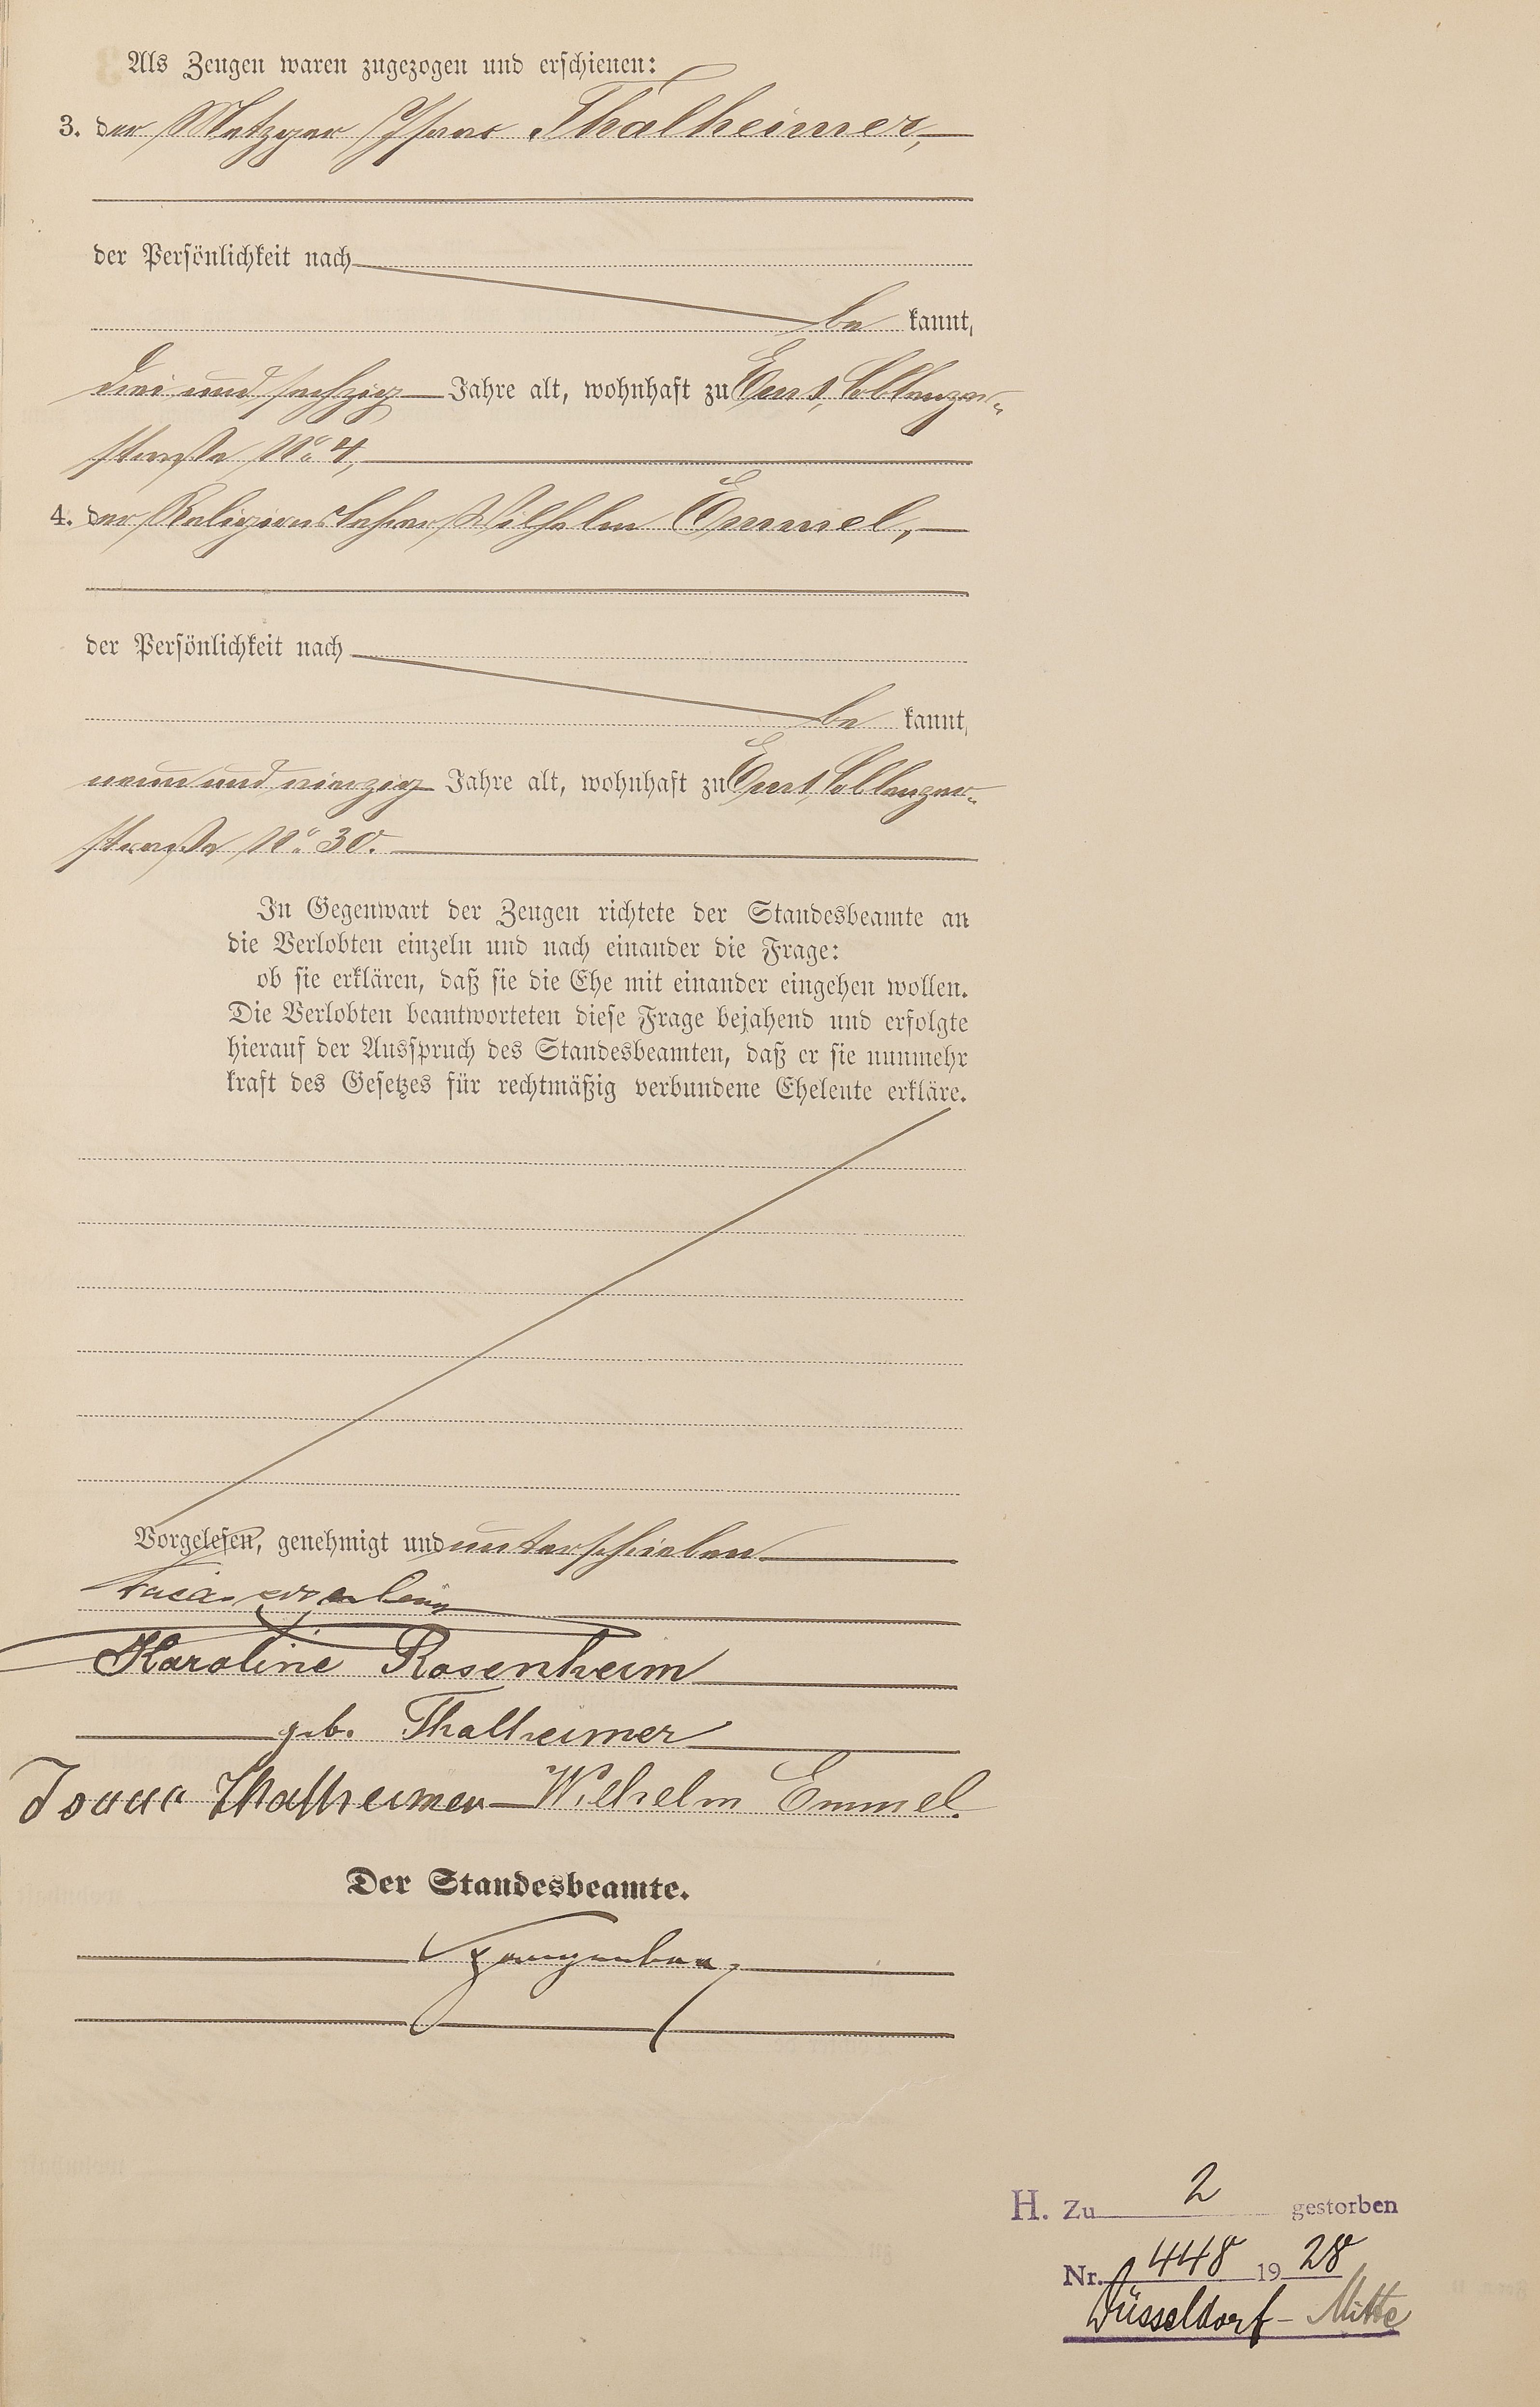 Als Zeugen waren zugezogen und erschienen:
3. der Metzger Isaac Thalheimer,
der Persönlichkeit nach
be kannt,
drei und sechzig Jahre alt, wohnhaft zu Ems, Coblenzer-
straße No. 4,
4. der Religionslehrer Wilhelm Emmel,
der Persönlichkeit nach
be kannt,
neun und vierzig Jahre alt, wohnhaft zu Ems, Coblenzer-
straße No. 30.
In Gegenwart der Zeugen richtete der Standesbeamte an
die Verlobten einzeln und nach einander die Frage:
ob sie erklären, daß sie die Ehe mit einander eingehen wollen.
Die Verlobten beantworteten diese Frage bejahend und erfolgte
hierauf der Ausspruch des Standesbeamten, daß er sie nunmehr
kraft des Gesetzes für rechtmäßig verbundene Eheleute erkläre.
Vorgelesen, genehmigt und unterschrieben
Karoline Rosenheim
geb. Thalheimer
Isaac Thalheimer Wilhelm Emmel.
Der Standesbeamte.
H. Zu 2 gestorben
Nr. 448 1928
Düsseldorf - Mitte